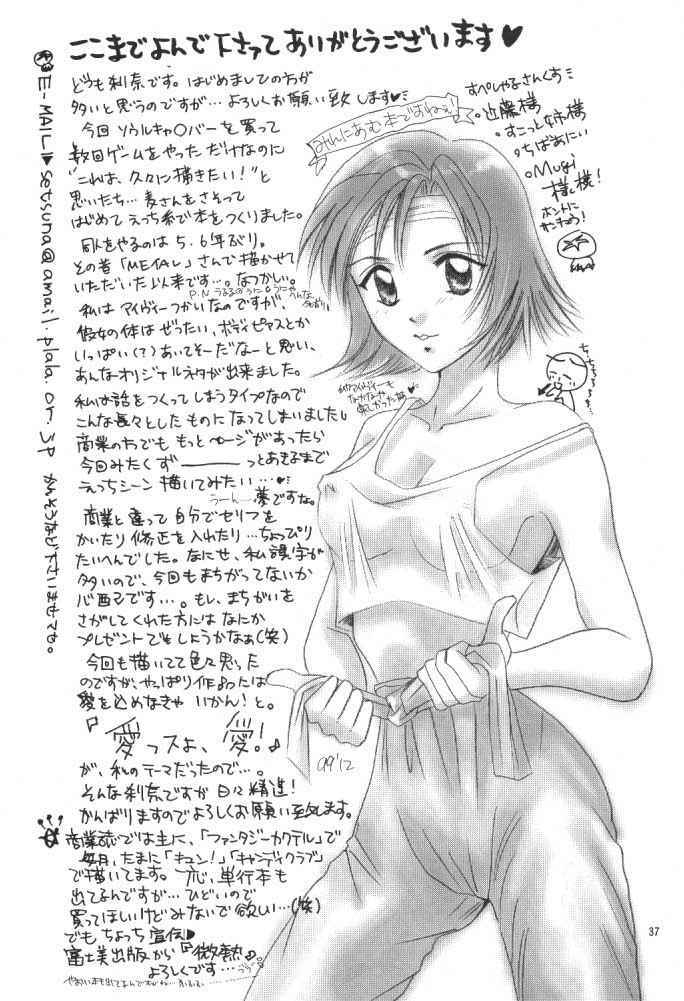 ここまでよんで下さってありがとうございます♥
どうも刹奈です。はじめましての方が
多いと思うのですが…よろしくお願い致します♥
今回ソウルキャ○バーを買って
数回ゲームをやっただけなのに
"これは、久々に描きたい！"と
思いたち…麦さんをさそって
はじめてえっち系で本をつくりました。
同人をやるのは5.6年ぶり。
その昔「METAL」さんで描かせて
いただいた以来です…。なつかしい。
私はアイヴィーつかいなのですが、
彼女の体はぜったい、ボディピアスとか
いっぱい(？)あいてそーだなーと思い、
あんなオリジナルネタが出来ました。
私は話をつくってしまうタイプなので
こんな長々としたものになってしまいました
商業の方でももっとページがあったら
今回みたくず――――っとあきるまで
えっちシーン描いてみたい…♥
うーん…夢ですな。
商業と違って自分でセリフを
かいたり修正を入れたり…ちょっぴり
たいへんでした。なにせ、私誤字が
多いので、今回もまちがってないか
心配です…。もし、まちがいを
さがしてくれた方にはなにか
プレゼントでもしようかなぁ(笑)
今回も描いてて色々思った
のですが、やっぱり作品は
愛を込めなきゃいかん！と。
『愛っスよ、愛！』
が、私のテーマだったので…。
そんな刹奈ですが日々精進！
がんばりますのでよろしくお願い致します。
商業誌では主に、「ファンタジーカクテル」で
毎月、たまに「キュン！」「キャンディクラブ」
で描いてます。一応、単行本も
出てるんですが…ひどいので
買ってほしいけどみないで欲しい…(笑)
でもちょっち宣伝♥
富士美出版から『微熱』
よろしくです…
E-MAIL▶setsuna@amail.plala.or.jp かんそうなど下さいませでも。
みんにあむ本ですねぇ！
すぺしゃるさんくす
近藤様
すこっと姉様
ちばあにい
Mugi様
様！
ホントに
99'12
37